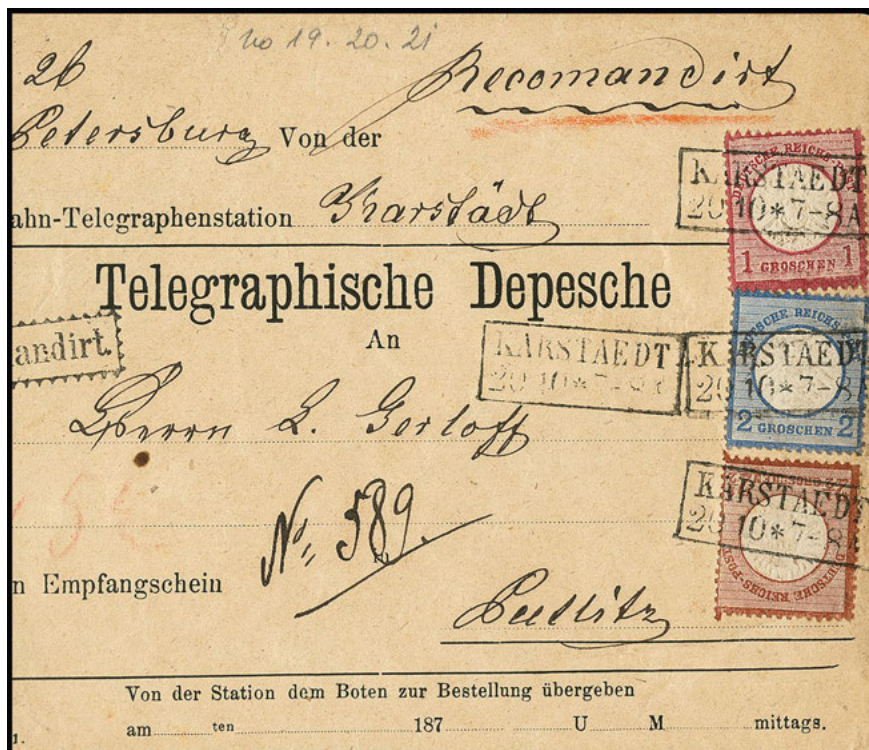 No 19. 20. 21
26
Recomandirt
Petersburg Von der
ahn-Telegraphenstation Karstädt
DEUTSCHE REICHS-POST
KARSTAEDT
20 10*7-8A
1 GROSCHEN 1
Telegraphische Depesche
andirt.
An
KARSTAEDT
20 10*7-8A
DEUTSCHE REICHS-POST
KARSTAEDT
20 10*7-8A
2 GROSCHEN 2
Herrn L. Gerloff
No 589.
in
KARSTAEDT
20 10*7-8A
DEUTSCHE REICHS-POST
n Empfangschein
Putlitz
Von der Station dem Boten zur Bestellung übergeben
am ten 187 U M mittags.